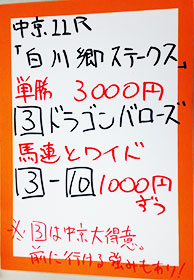 中京11R
「白川郷ステークス」
単勝 3000円
3 ドラゴンバローズ
馬連とワイド
3-10 1000円
ずつ
※3は中京大得意。
前に行ける強みもあり!